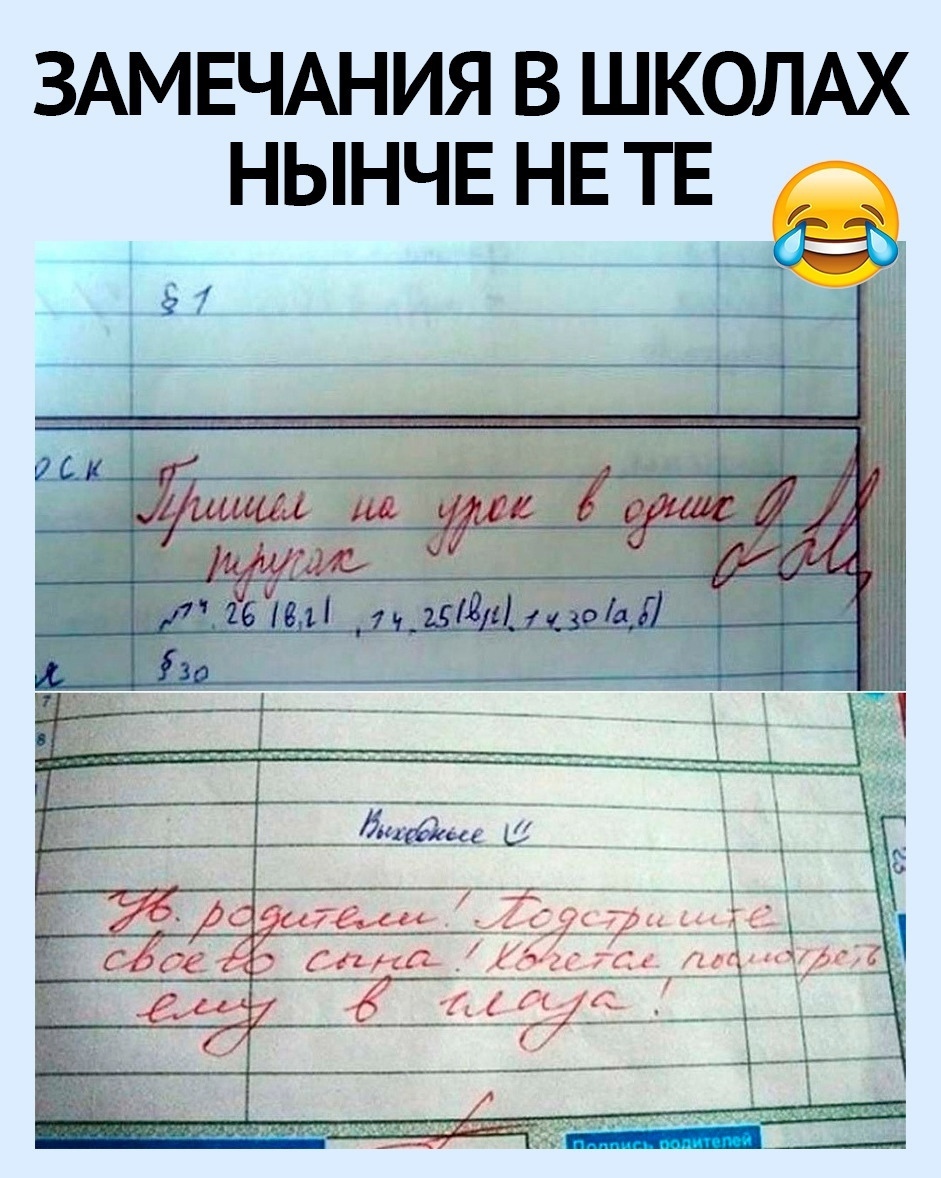 ЗАМЕЧАНИЯ В ШКОЛАХ
НЫНЧЕ НЕ ТЕ
§ 1
оск
Пришел на урок в одних
трусах
14.26 (в,г), 14.25(в,г), 14.30 (а,б)
§ 30
7
8
Выходные
Ув. родители! Подстригите
своего сына! Хочется посмотреть
ему в глаза!
23
Подпись родителей